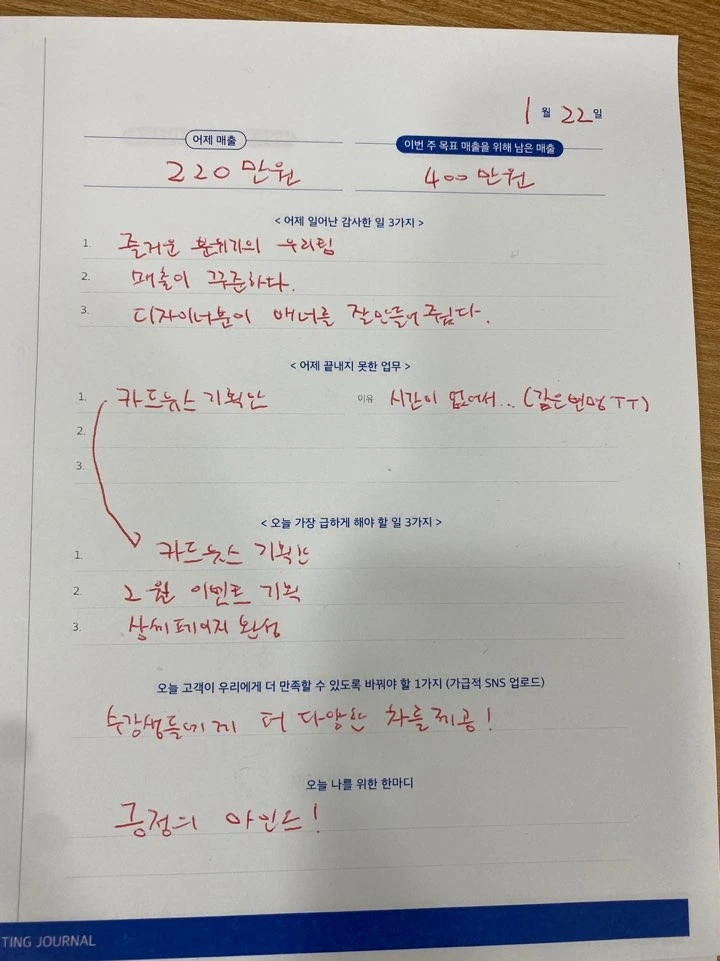 1월 22일
어제 매출
이번 주 목표 매출을 위해 남은 매출
220만원
400만원
< 어제 일어난 감사한 일 3가지 >
1. 즐거운 분위기의 우리팀
2. 매출이 꾸준하다.
3. 디자이너분이 배너를 잘 만들어 주신다.
< 어제 끝내지 못한 업무 >
1. 카드뉴스 기획안 이유 시간이 없어서... (같은변명ㅜㅜ)
2.
3.
< 오늘 가장 급하게 해야 할 일 3가지 >
1. 카드뉴스 기획안
2. 2월 이벤트 기획
3. 상세페이지 완성
오늘 고객이 우리에게 더 만족할 수 있도록 바꿔야 할 1가지 (가급적 SNS 업로드)
수강생들에게 더 다양한 차를 제공!
오늘 나를 위한 한마디
긍정의 마인드!
TING JOURNAL